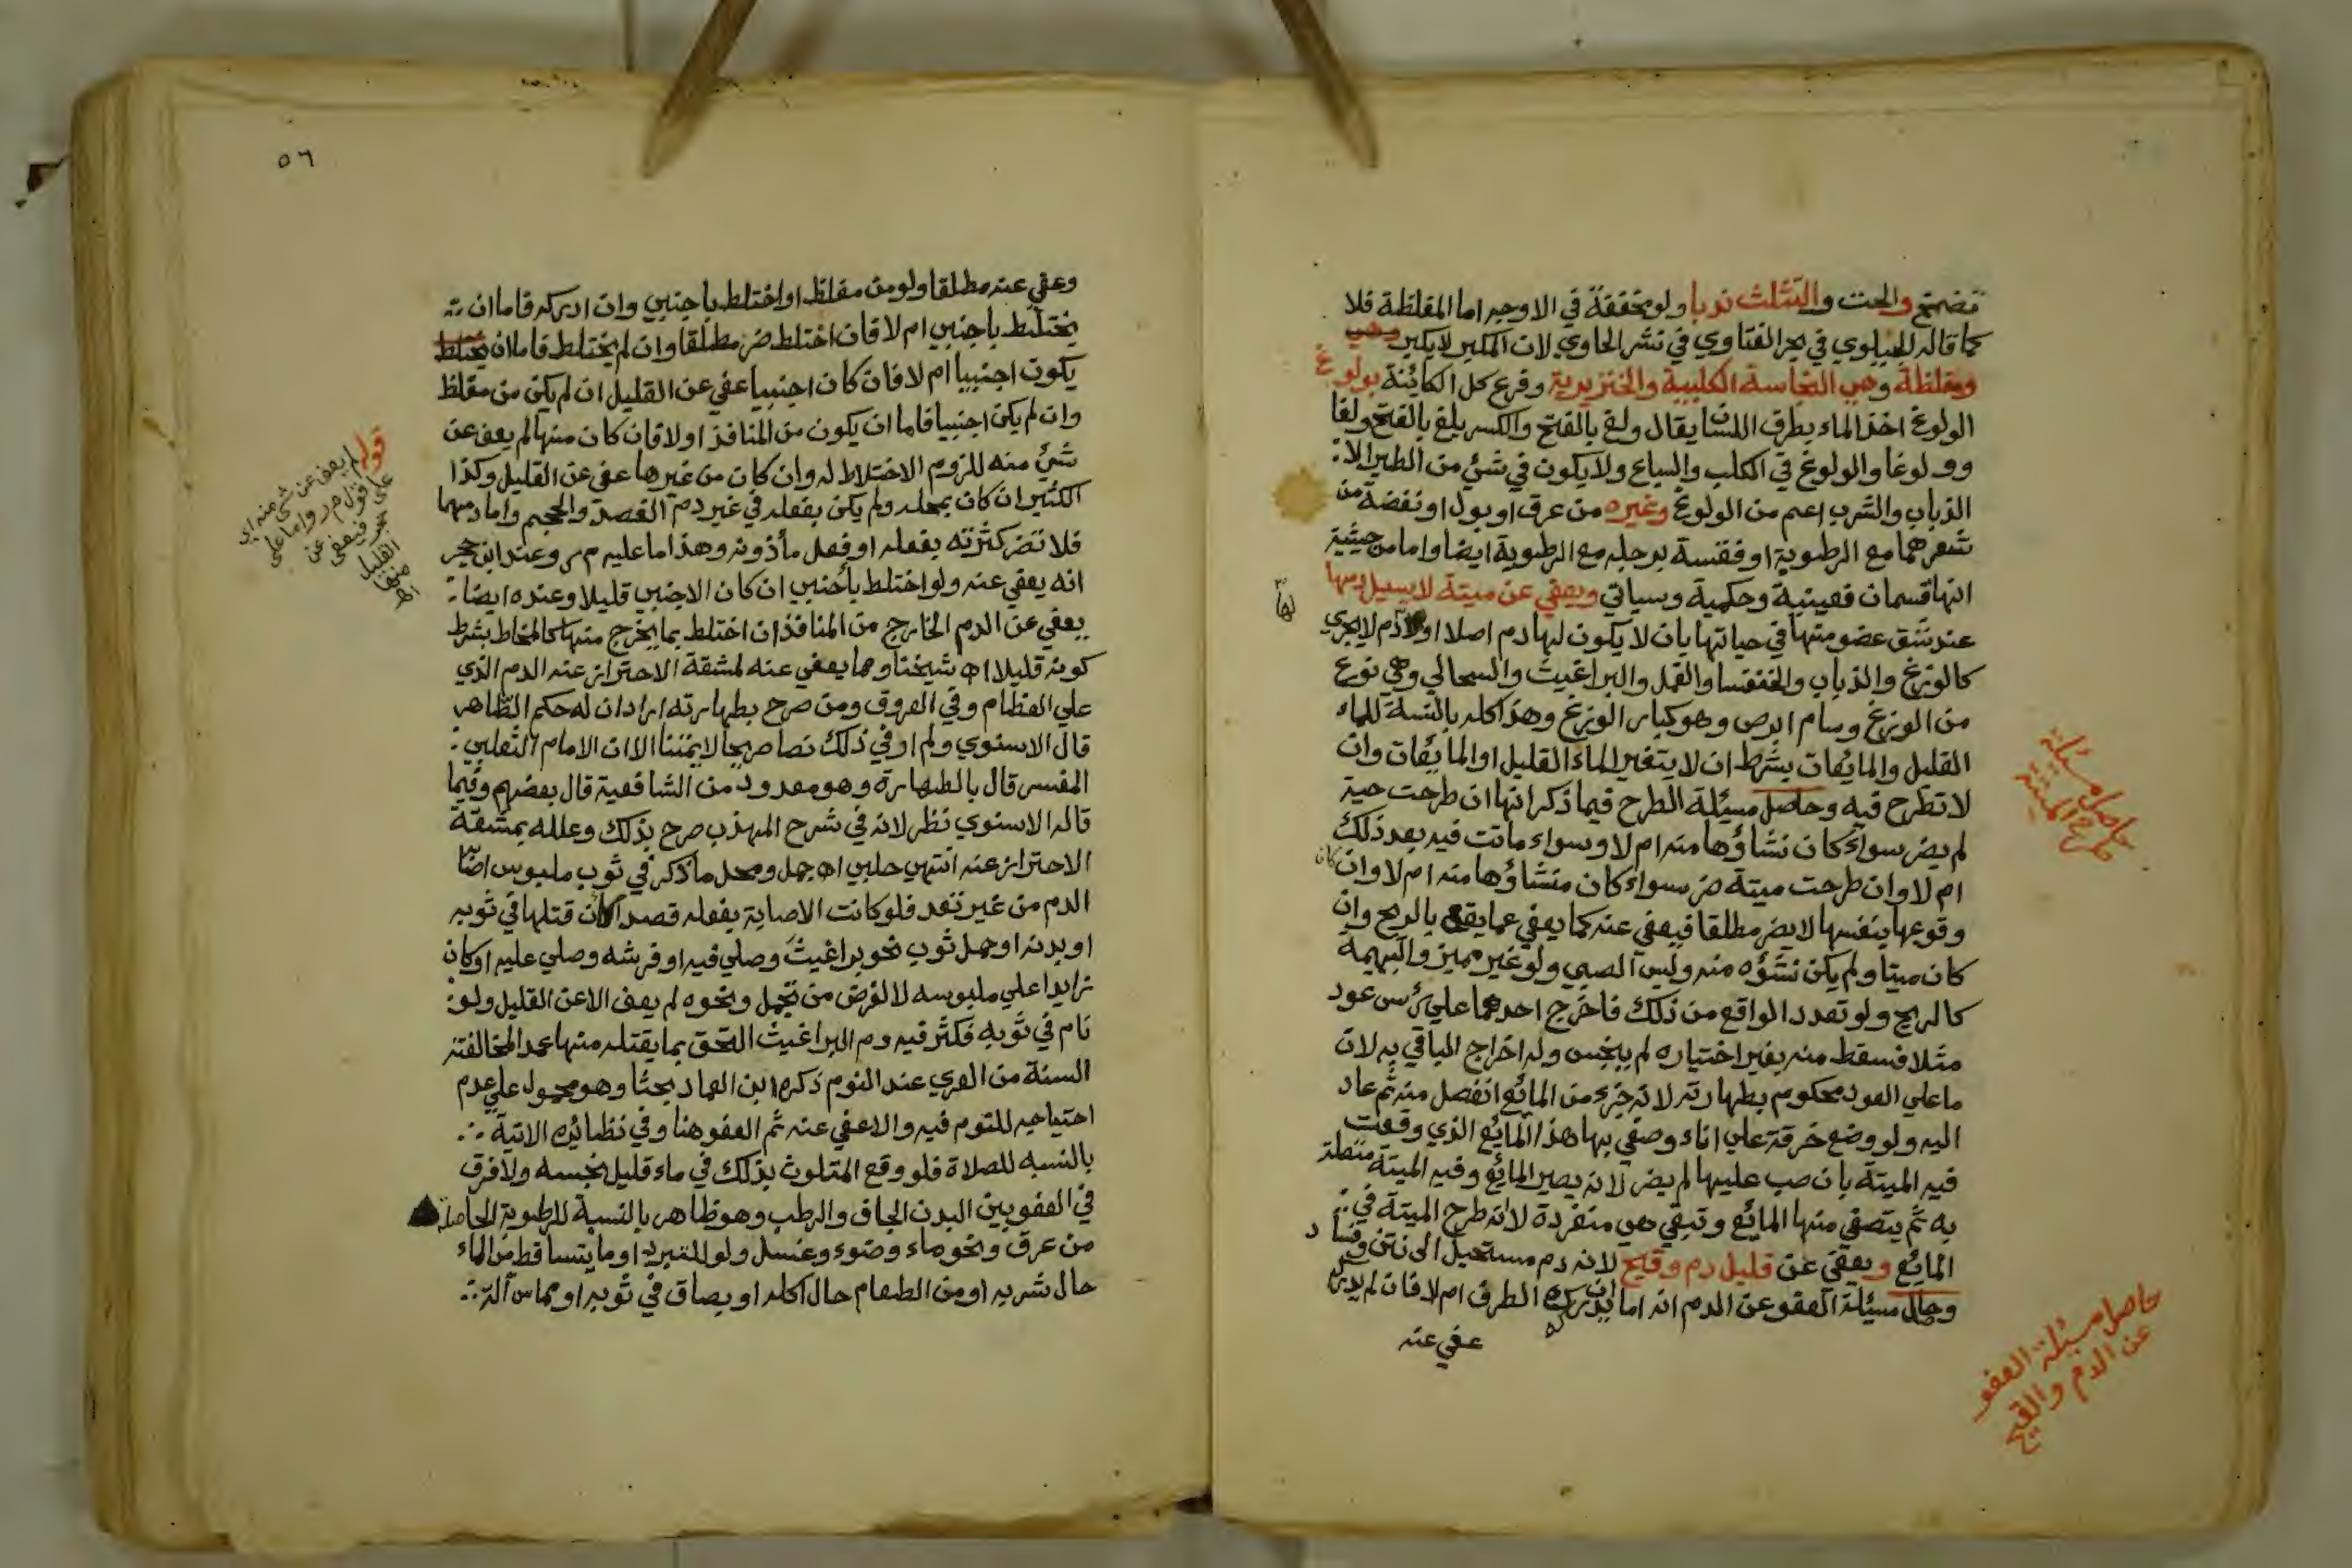 تضمخ والحت والتثليث ندبا ولو مخففة في الاوجه اما المغلظة فلا
كما قاله الجيلوي في بحر الفتاوي في نشر الحاوي لان المكبر لا يكبر وهي
ومغلظة وهي النجاسة الكلبية والخنزيرية وفرع كل الكائنة بولوغ
الولوغ اخذ الماء بطرف اللسان يقال ولغ بالفتح والكسر يلغ بالفتح ولغا
وولوغا والولوغ في الكلب والسباع ولا يكون في شئ من الطير الا
الذباب والشرب اعم من الولوغ وغيره من عرق او بول او نفضة من
شعرهما مع الرطوبة او فقسة برجله مع الرطوبة ايضا واما من حيثية
انها قسمان فعينية وحكمية وسياتي ويعفي عن ميتة لا يسيل دمها
عند شق عضو منها في حياتها بان لا يكون لها دم اصلا او لها دم لا يجري
كالوزغ والذباب والخنفسا والقمل والبراغيث والسحالي وهي نوع
من الوزغ وسام ابرص وهو كبار الوزغ وهذا كله بالنسبة للماء
القليل والمايعات بشرط ان لا يتغير الماء القليل او المايعات وان
لا تطرح فيه وحاصل مسئلة الطرح فيما ذكر انها ان طرحت حية
لم يضر سواء كان نشاؤها منه ام لا وسواء ماتت فيه بعد ذلك
ام لا وان طرحت ميتة ضر سواء كان منشاؤها منه ام لا وان كان
وقوعها بنفسها لا يضر مطلقا فيعفي عنه كما يعفي عما يقع بالريح وان
كان ميتا ولم يكن نشؤه منه وليس الصبي ولو غير مميز والبهيمة
كالريح ولو تعدد الواقع من ذلك فاخرج احدهما علي رأس عود
مثلا فسقط منه بغير اختياره لم ينجس وله اخراج الباقي به لان
ما علي العود محكوم بطهارته لانه جزء من المائع انفصل منه ثم عاد
اليه ولو وضع خرقة علي اناء وصفي بها هذا المائع الذي وقعت
فيه الميتة بان صب عليها لم يضر لانه يصير المائع وفيه الميتة متصلة
به ثم يتصفي منها المائع وتبقي هي منفردة لانه طرح الميتة في
المائع ويعفي عن قليل دم وقيح لانه دم مستحيل الى نتن وفساد
وحاصل مسئلة العفو عن الدم انه اما ان يدركه الطرف ام لا فان لم يدركه
عفي عنه
لها
حاصل مسئلة
طرح الميتة
حاصل مسئلة العفو
عن الدم والقيح
٥٦
وعفي عنه مطلقا ولو من مغلظ او اختلط باجنبي وان ادركه فاما ان
يختلط باجنبي ام لا فان اختلط ضر مطلقا وان لم يختلط فاما ان يختلط
يكون اجنبيا ام لا فان كان اجنبيا عفي عن القليل ان لم يكن من مغلظ
وان لم يكن اجنبيا فاما ان يكون من المنافذ او لا فان كان منها لم يعف عن
شئ منه للزوم الاختلاط له وان كان من غيرها عفي عن القليل وكذا
الكثير ان كان بمحله ولم يكن بفعله في غير دم الفصد والحجم واما دمهما
فلا تضر كثرته بفعله او فعل مأذونه وهذا ما عليه م ر وعند ابن حجر
انه يعفي عنه ولو اختلط بأجنبي ان كان الاجنبي قليلا وعنده ايضا
يعفي عن الدم الخارج من المنافذ ان اختلط بما يخرج منها كالمخاط بشرط
كونه قليلا اه شيخنا ومما يعفي عنه لمشقة الاحتراز عنه الدم الذي
علي العظام وفي العروق ومن صرح بطهارته اراد ان له حكم الظاهر
قال الاسنوي ولم ار في ذلك نصا صريحا لايمتنا الا ان الامام الثعلبي
المفسر قال بالطهارة وهو معدود من الشافعية قال بعضهم وفيما
قاله الاسنوي نظر لانه في شرح المهذب صرح بذلك وعلله بمشقة
الاحتراز عنه انتهي حلبي اه جمل ومحل ما ذكر في ثوب ملبوس اصابه
الدم من غير تعمد فلو كانت الاصابة بفعله قصدا كان قتلها في ثوبه
او بدنه او حمل ثوب نحو براغيث وصلي فيه او فرشه وصلي عليه او كان
زايدا علي ملبوسه لا لغرض من تجمل ونحوه لم يعف الا عن القليل ولو
نام في ثوبه فكثر فيه دم البراغيث التحق بما يقتله منها عمدا لمخالفته
السنة من العري عند النوم ذكره ابن العماد بحثا وهو محمول علي عدم
احتياجه للنوم فيه والا عفي عنه ثم العفو هنا وفي نظائره الاتية
بالنسبه للصلاة فلو وقع المتلوث بذلك في ماء قليل نجسه ولا فرق
في العفو بين البدن الجاف والرطب وهو ظاهر بالنسبة للرطوبة الحاصلة
من عرق ونحو ماء وضوء وغسل ولو للتبرد او ما يتساقط من الماء
حال شربه او من الطعام حال اكله او بصاق في ثوبه او مماس آلة
قوله لم يعف عن شئ منه اي
علي قول م ر واما علي
حجر فيعفي عن
القليل
منها
اه